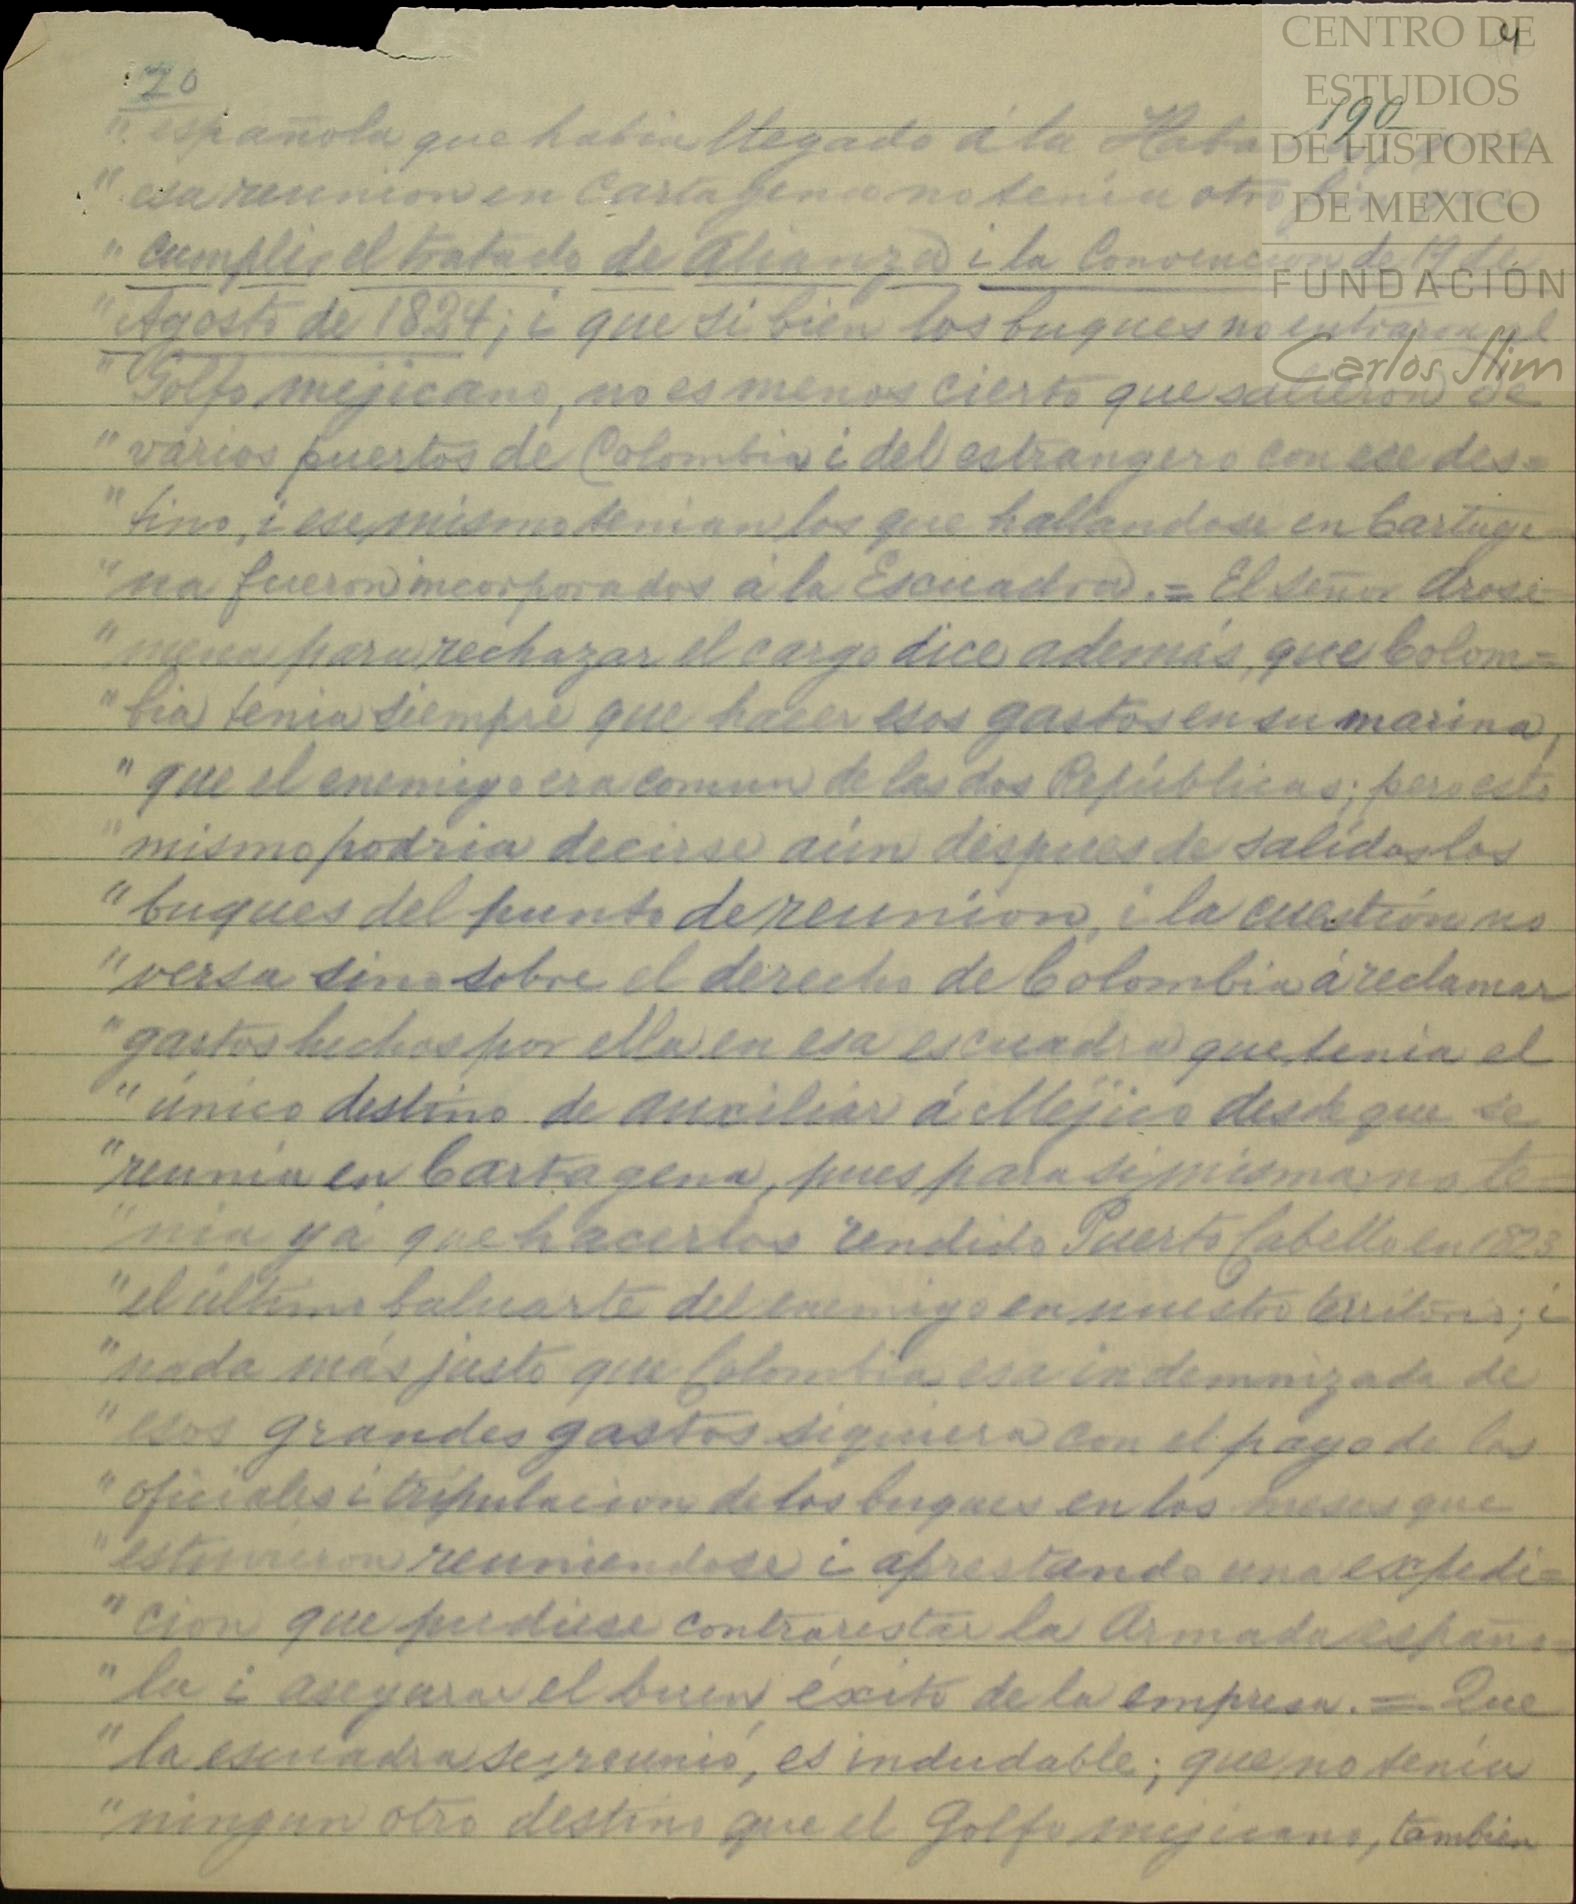 CENTRO DE
ESTUDIOS
DE HISTORIA
DE MEXICO
FUNDACIÓN
Carlos Slim
4
20
190
" española que habia llegado á la
" esa reunion en Cartagena no tenia otro
" cumplir el tratado de Alianza i la Convencion de 19 de
" Agosto de 1824; i que si bien los buques no entraron al
" Golfo mejicano, no es menos cierto que salieron de
" varios puertos de Colombia i del estrangero con ese des=
" tino, i ese mismo tenian los que hallandose en Cartage-
" na fueron incorporados á la Escuadra.= El señor Arose-
" mena para rechazar el cargo dice además, que Colom=
" bia tenia siempre que hacer esos gastos en su marina,
" que el enemigo era comun de las dos Repúblicas; pero esto
" mismo podria decirse aún despues de salidos los
" buques del punto de reunion, i la cuestión no
" versa sino sobre el derecho de Colombia á reclamar
" gastos hechos por ella en esa escuadra que tenia el
" único destino de auxiliar á Méjico desde que se
" reunia en Cartagena, pues para si misma no te=
" nia yá que hacerlos rendido Puerto Cabello en 1823
" el último baluarte del enemigo en nuestro territorio; i
" nada más justo que Colombia sea indemnizada de
" esos grandes gastos siquiera con el pago de los
" oficiales i tripulacion de los buques en los meses que
" estuvieron reuniendose i aprestando una expedi=
" cion que pudiese contrarestar la Armada españo=
" la i asegurar el buen éxito de la empresa.= Que
" la escuadra se reunió, es indudable; que no tenia
" ningun otro destino que el Golfo mejicano, tambien